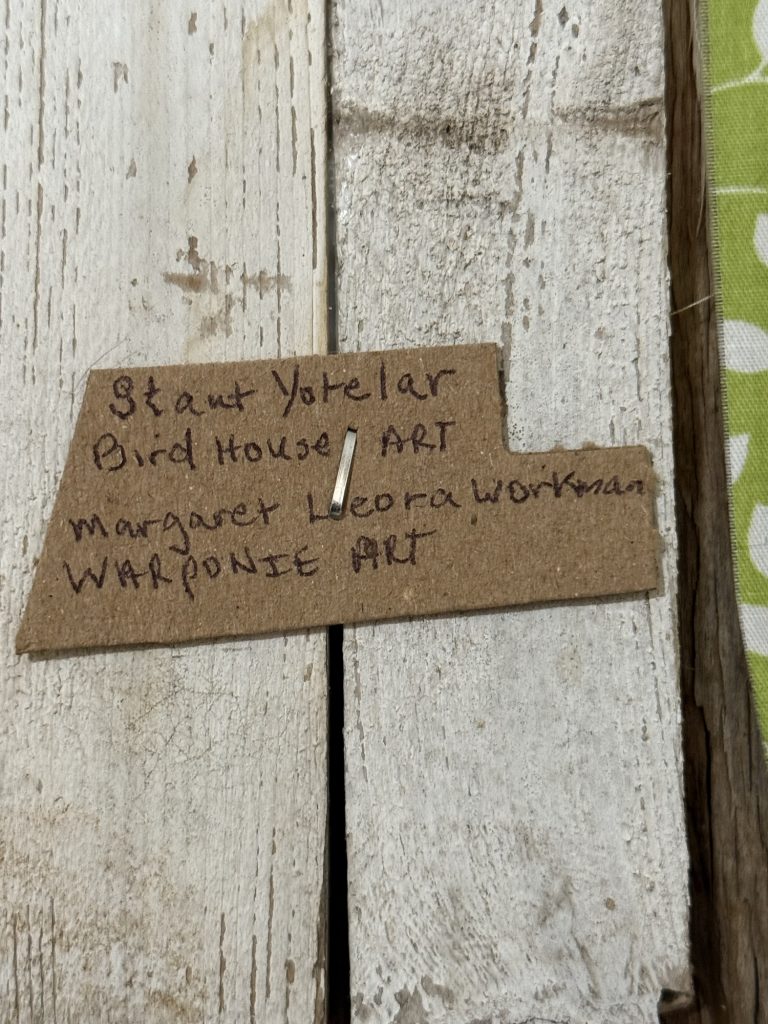 Staut Yotelar
Bird House ART
Margaret Leora Workman
WARPONIE ART